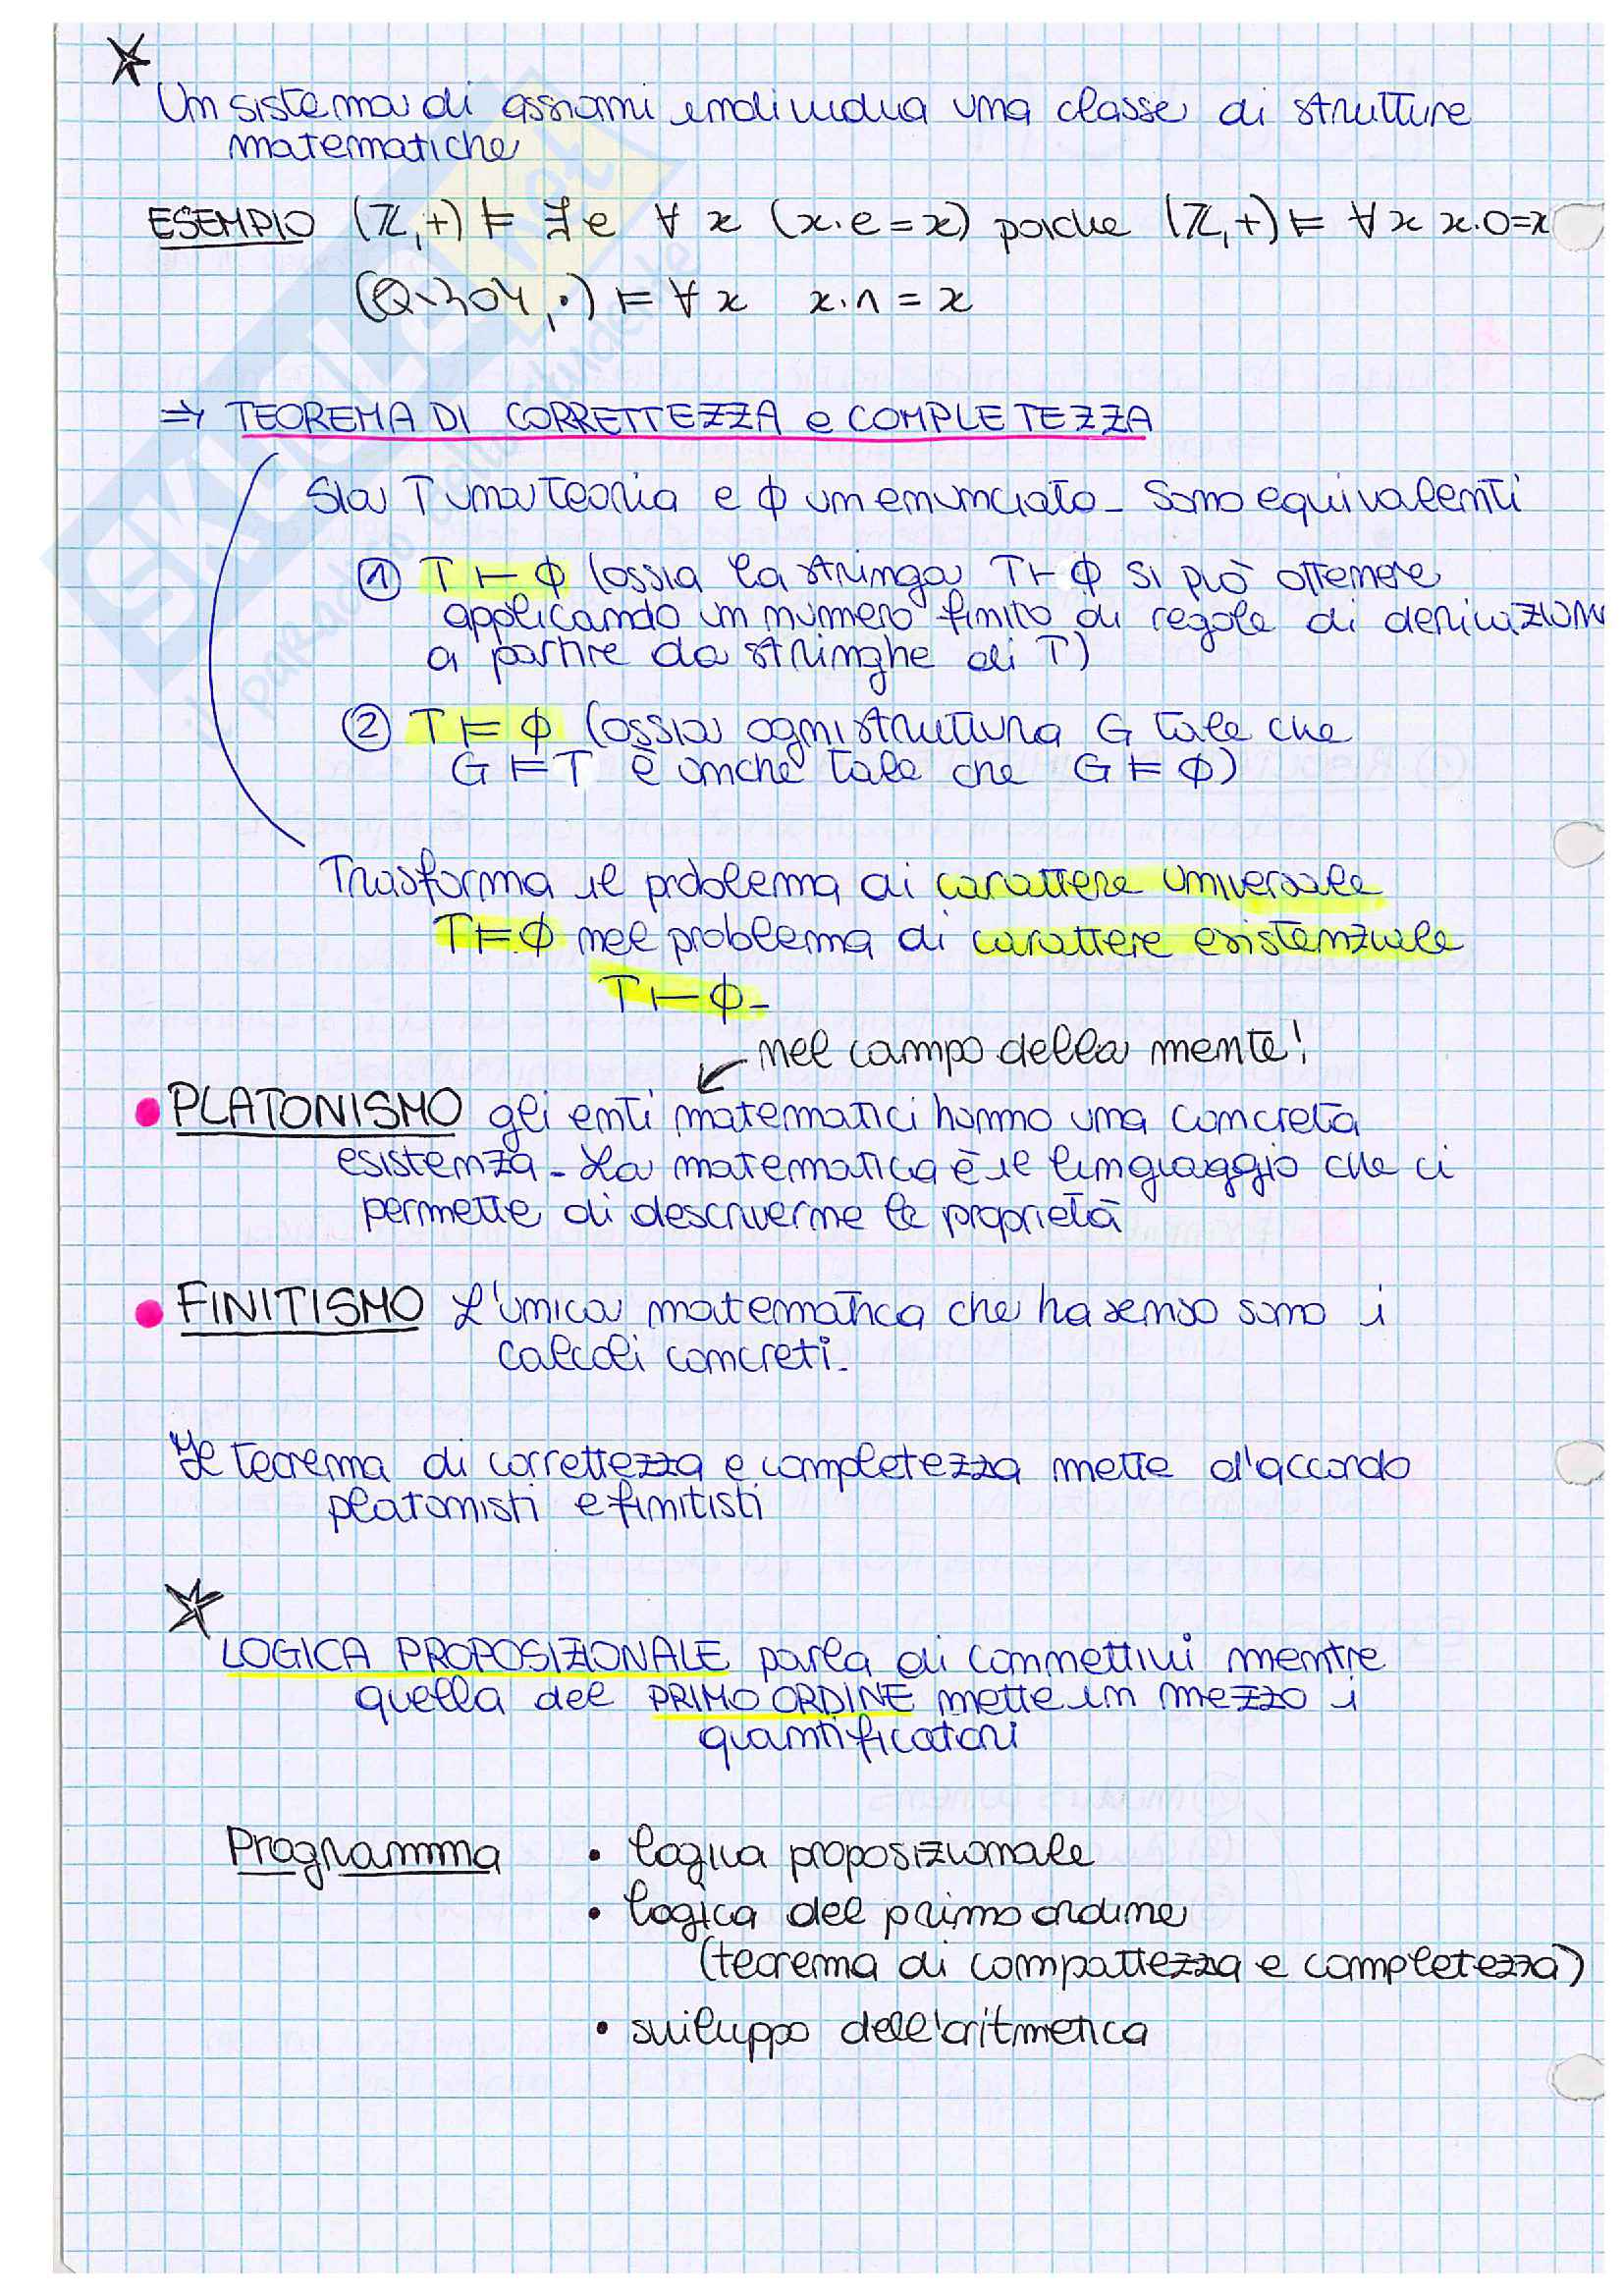 Un sistema di assiomi individua una classe di strutture
matematiche
ESEMPIO (ℤ,+) ⊨ ∃e ∀x (x·e=x) poiche (ℤ,+) ⊨ ∀x x·0=x
(ℚ∖{0},·) ⊨ ∀x x·1=x
⇒ TEOREMA DI CORRETTEZZA e COMPLETEZZA
Sia T una teoria e ϕ un enunciato_ Sono equivalenti
① T ⊢ ϕ (ossia la stringa T⊢ϕ si può ottenere
applicando un numero finito di regole di derivazion
a partire da stringhe di T)
② T ⊨ ϕ (ossia ogni struttura G tale che
G ⊨ T è anche tale che G ⊨ ϕ)
Trasforma il problema di carattere universale
T ⊨ ϕ nel problema di carattere esistenziale
T ⊢ ϕ_
nel campo della mente!
• PLATONISMO gli enti matematici hanno una concreta
esistenza_ La matematica è il linguaggio che ci
permette di descriverne le proprietà
• FINITISMO L'unica matematica che ha senso sono i
calcoli concreti_
Il teorema di correttezza e completezza mette d'accordo
platonisti e finitisti
LOGICA PROPOSIZIONALE parla di connettivi mentre
quella del PRIMO ORDINE mette in mezzo i
quantificatori
Programma • logica proposizionale
• logica del primo ordine
(teorema di compattezza e completezza)
• sviluppo dell'aritmetica